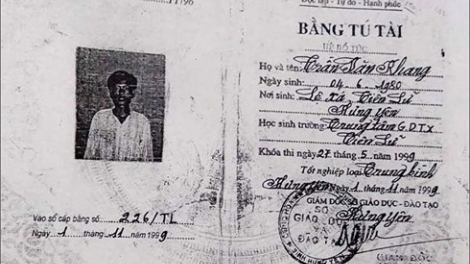 Độc lập - Tự do - Hạnh phúc
BẰNG TÚ TÀI
Họ và tên: Trần Văn Khang
Ngày sinh: 04 . 6 . 1980
Nơi sinh: Lê Xá Tiên Lữ
Hưng Yên
Học sinh trường Trung tâm G.D.T.x
Tiên Lữ
Khóa thi ngày 27 tháng 5 năm 1999
Tốt nghiệp loại Trung bình
Hưng Yên Ngày 1 tháng 11 năm 1999
GIÁM ĐỐC SỞ GIÁO DỤC - ĐÀO TẠO
Hưng Yên
SỞ
GIÁO DỤC
VÀ
ĐÀO TẠO
GIÁM ĐỐC
Vào sổ cấp bằng số 226/TL
Ngày 1 tháng 11 năm 1999